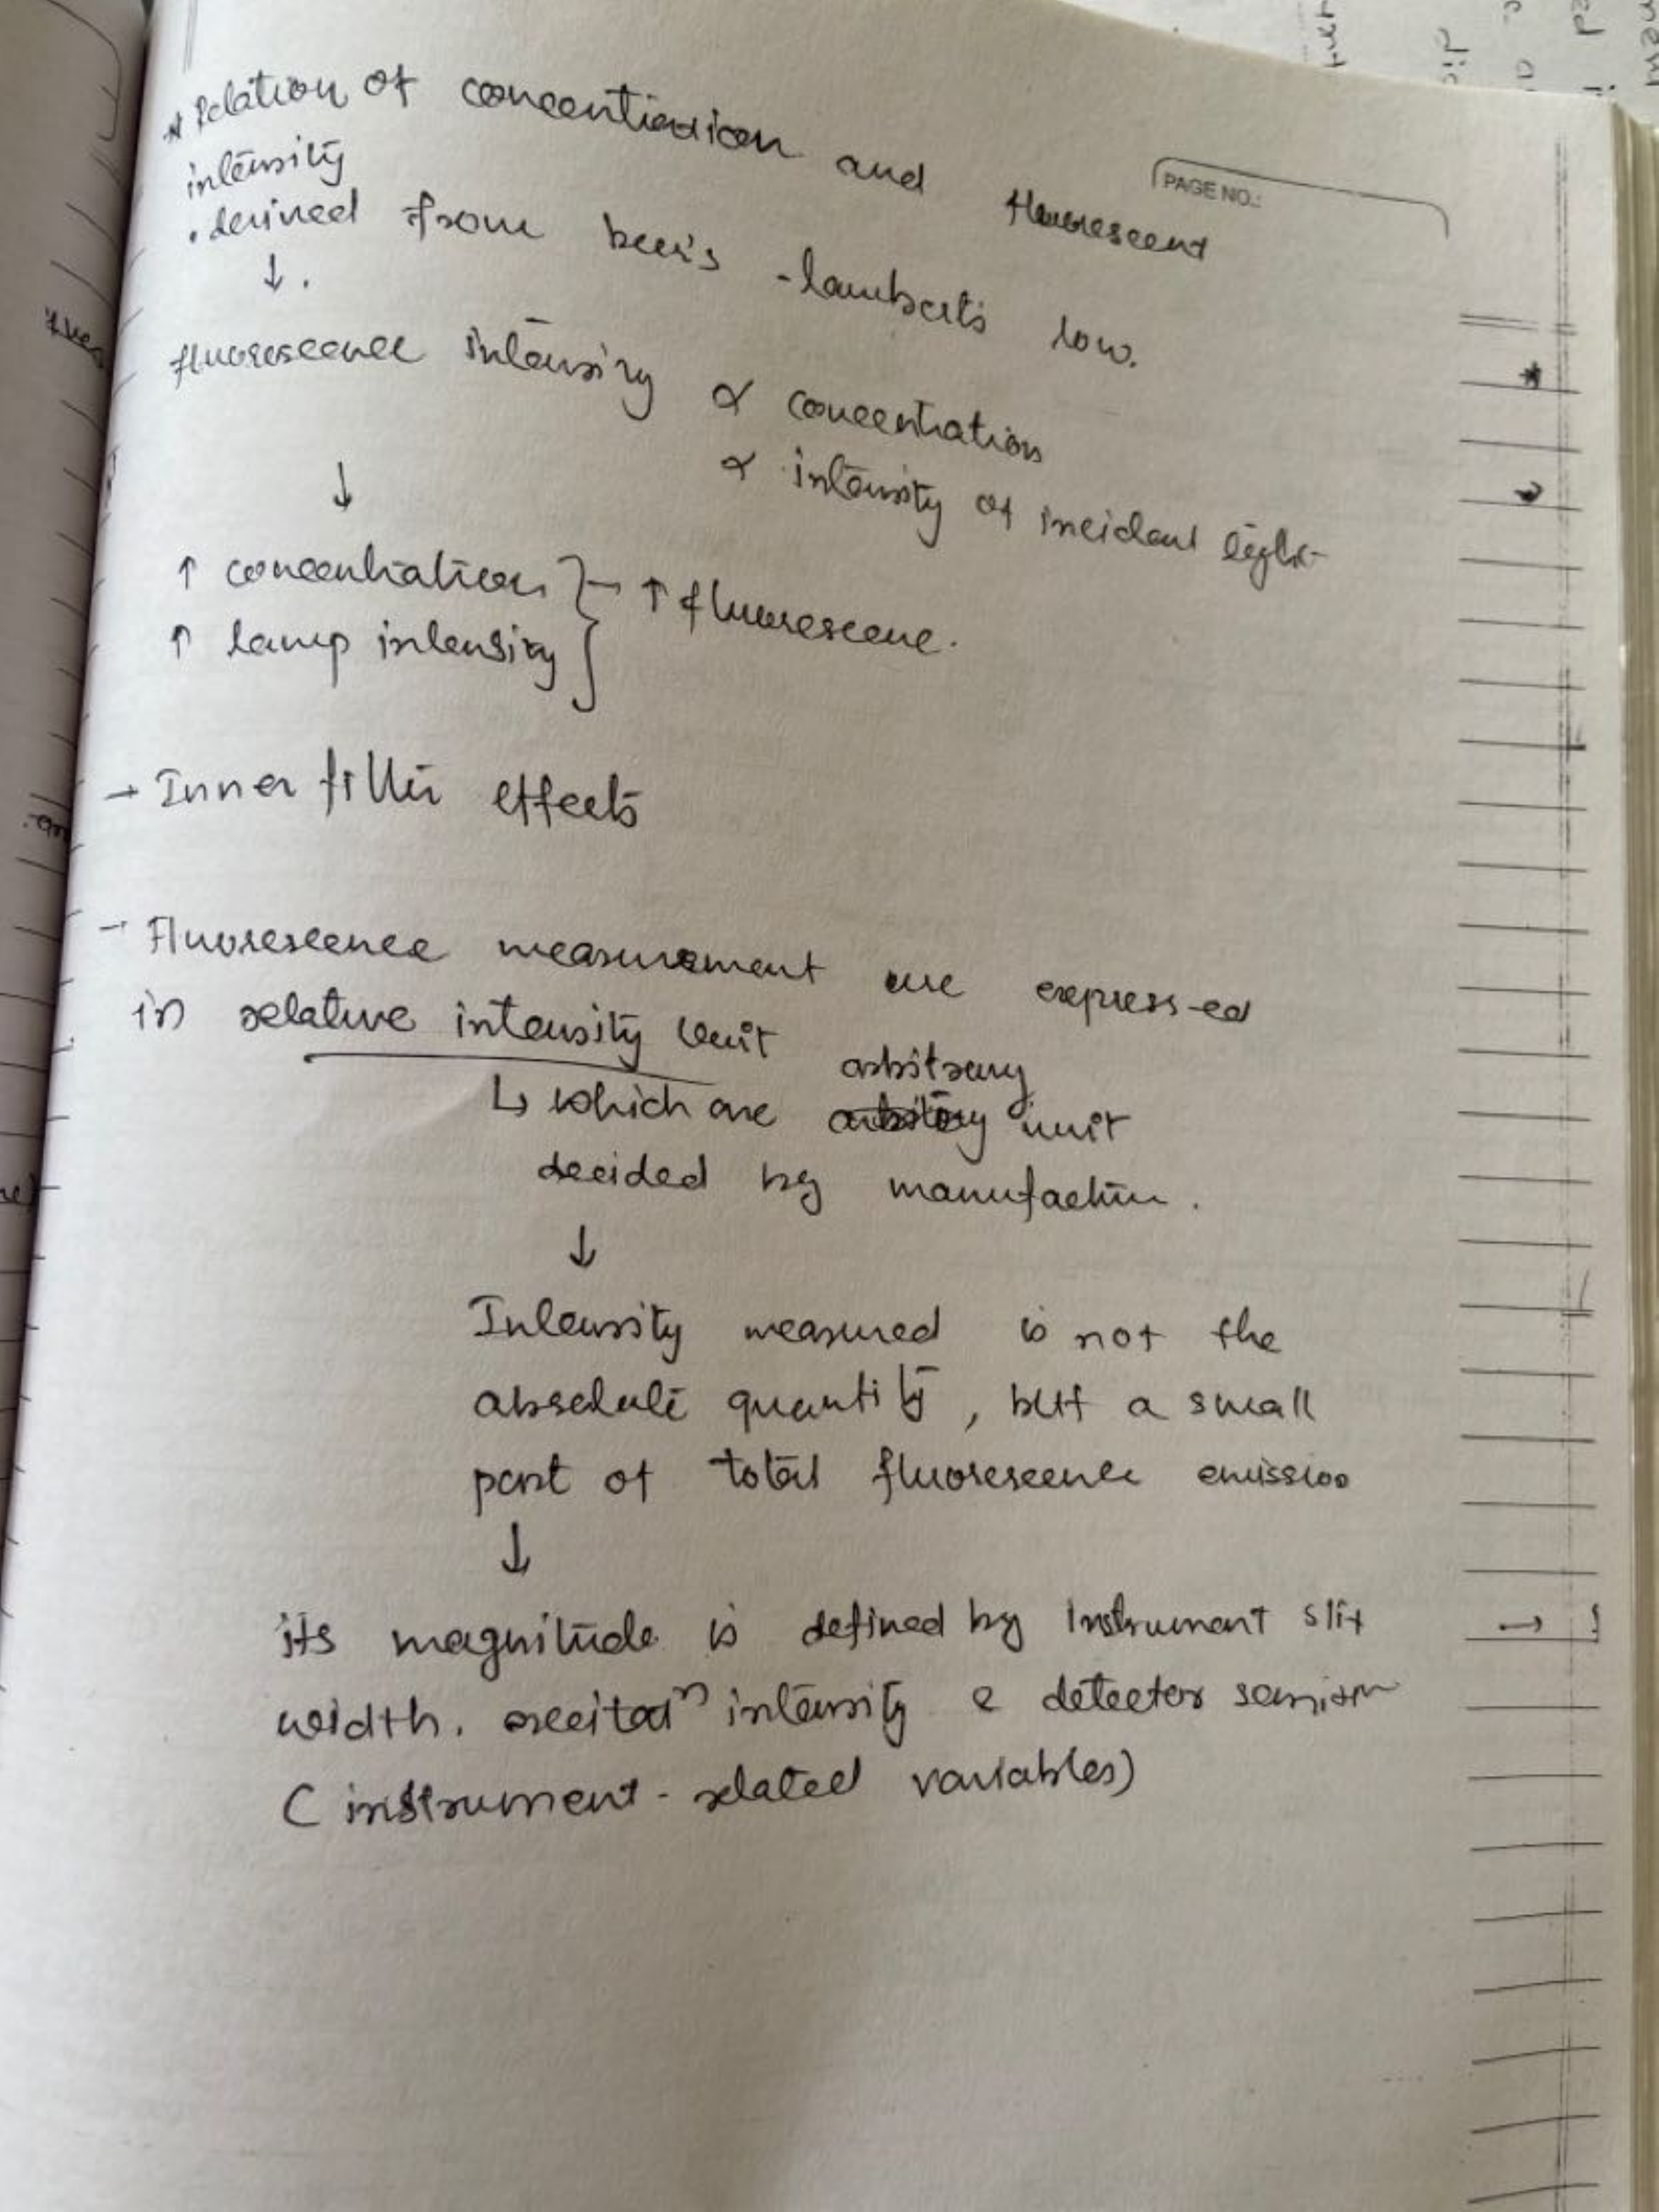 * Relation of concentration and fluorescent
intensity
PAGE NO.:
. derived from beer's - lambert's law.
↓ .
fluorescence intensity ∝ concentration
∝ intensity of incident light
↓
↑ concentration } - ↑ fluorescence.
↑ lamp intensity
→ Inner filter effects
- Fluorescence measurement are express-ed
in relative intensity unit
arbitrary
↳ which are unit
decided by manufacture.
↓
Intensity measured is not the
absolute quantity, but a small
part of total fluorescence emission
↓
its magnitude is defined by Instrument slit
width, excitatⁿ intensity & detector
(instrument-related variables)